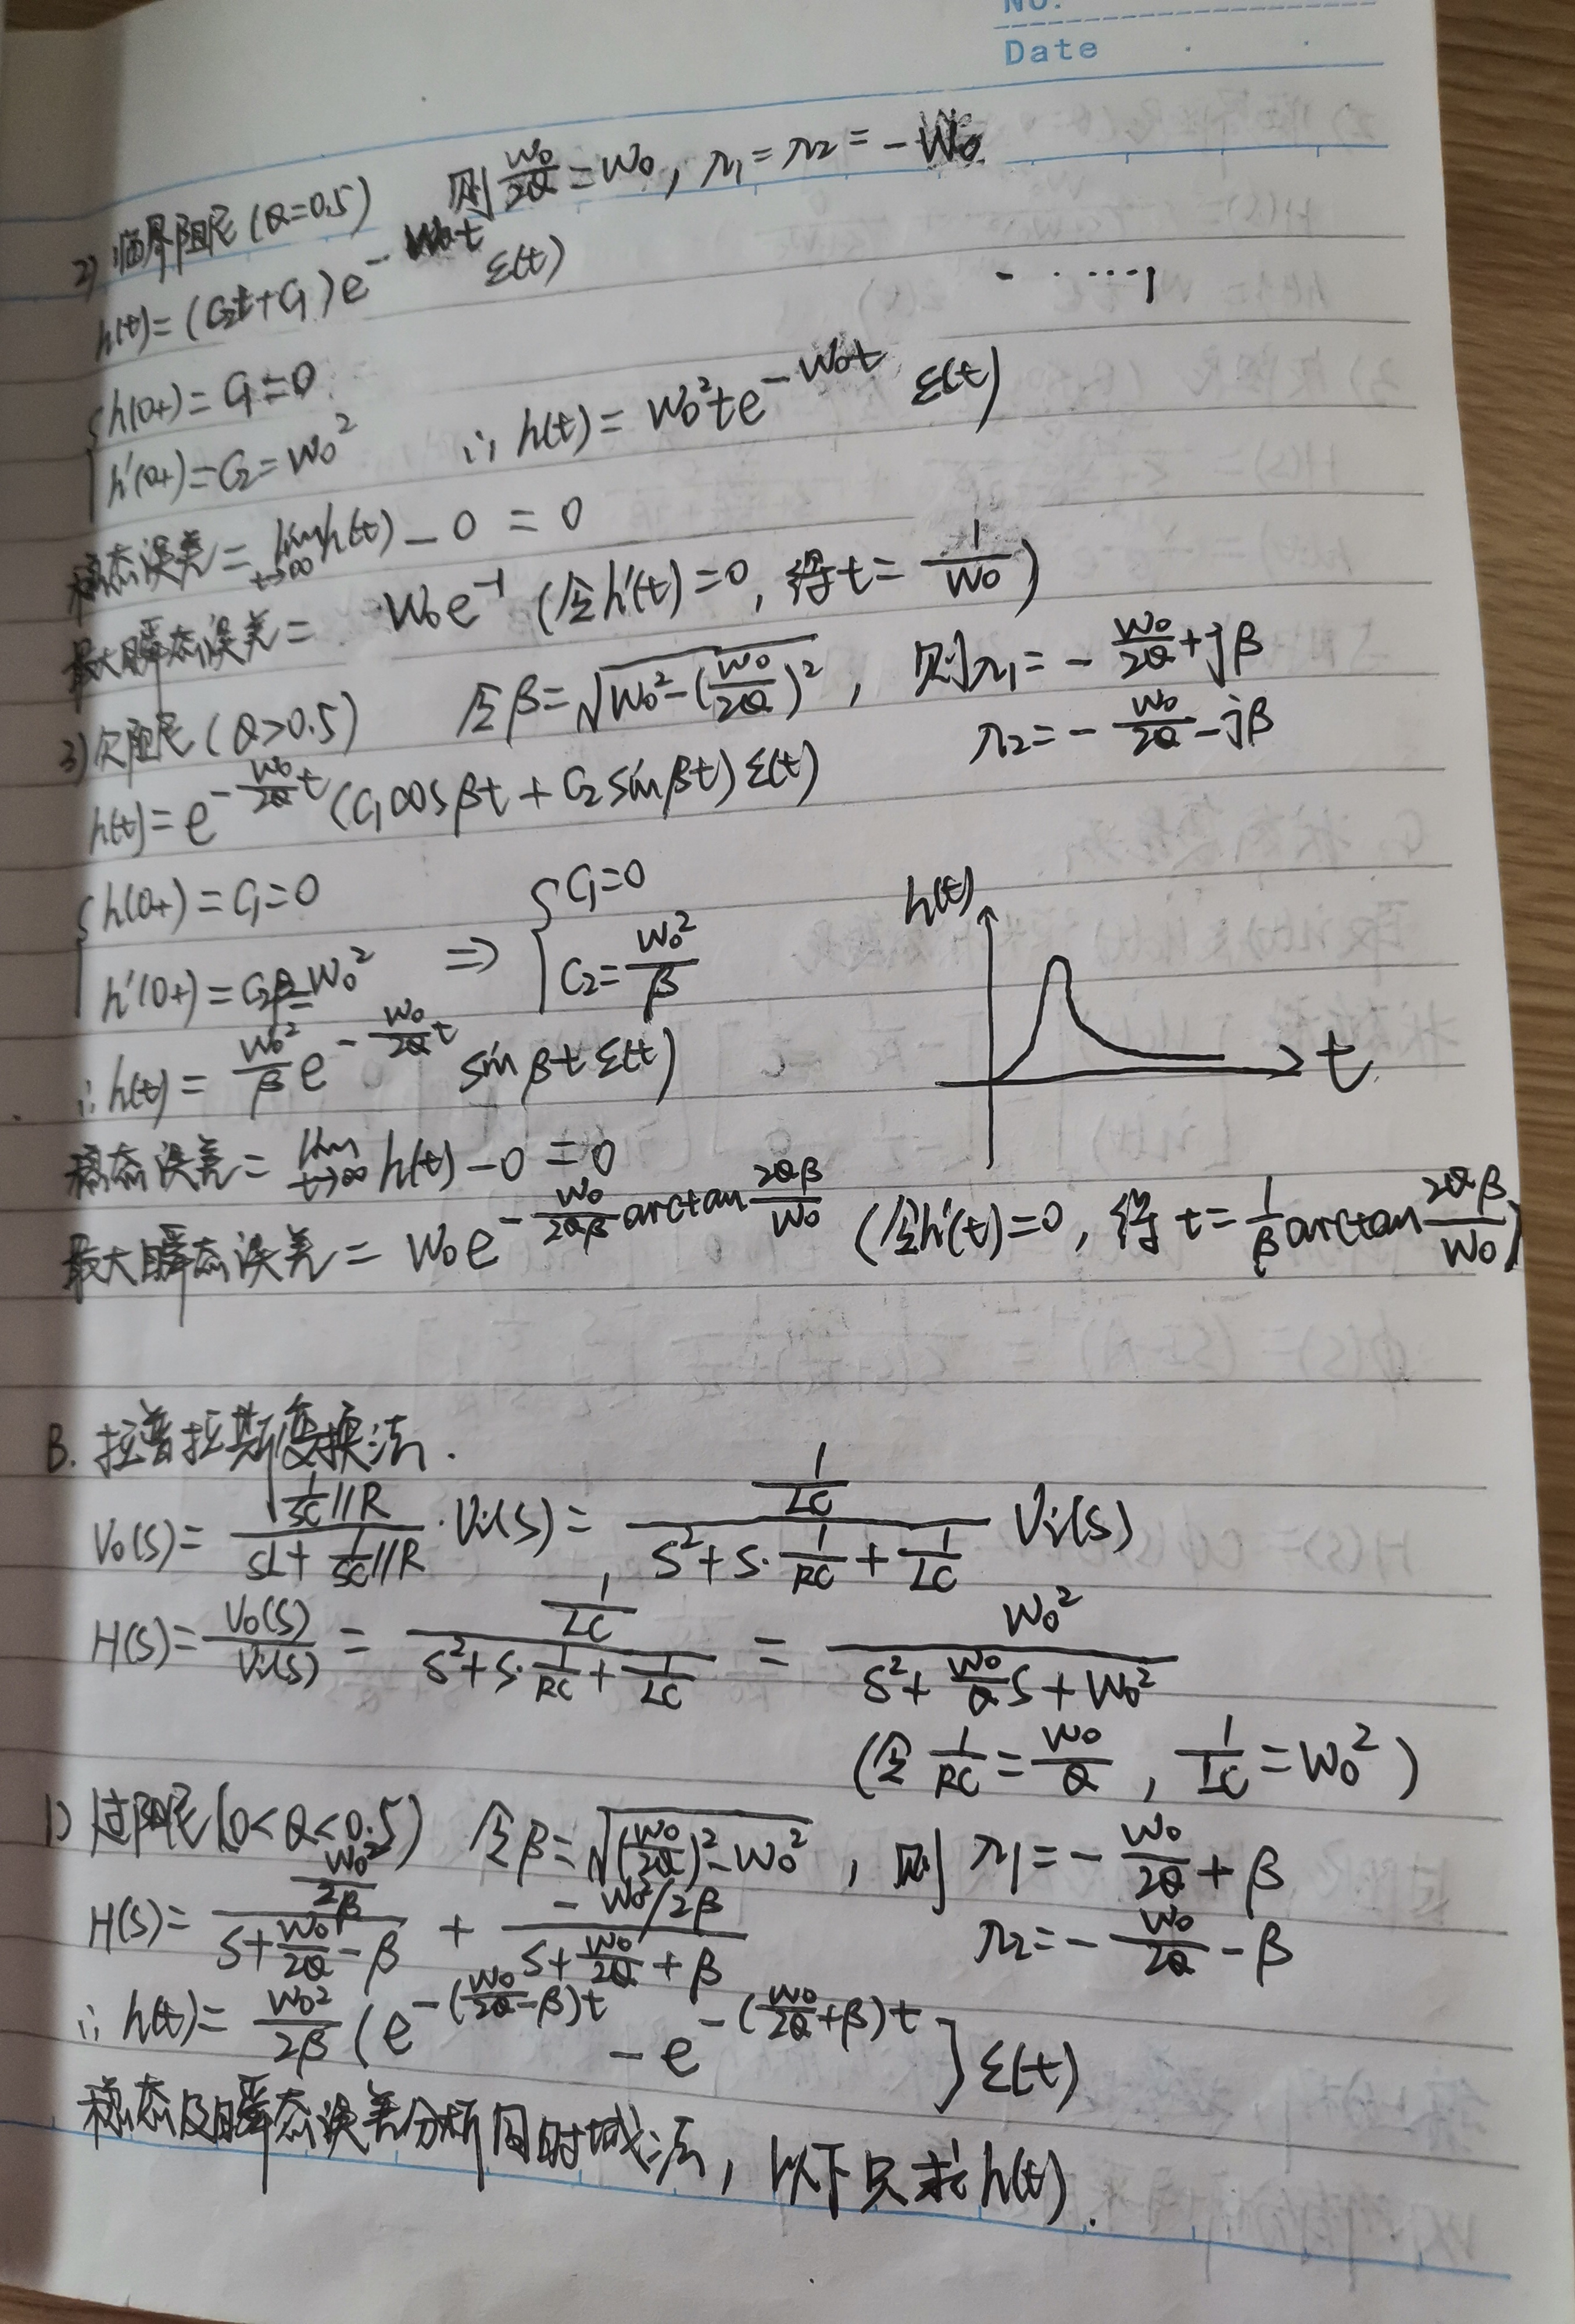 NO.
Date
2) 临界阻尼(Q=0.5) 则 W₀/2Q = W₀, λ₁=λ₂=-W₀
h(t)=(C₂t+C₁)e^(-W₀t) ε(t)
{h(0+)=C₁=0
h'(0+)=C₂=W₀² ∴ h(t)=W₀²te^(-W₀t) ε(t)
稳态误差=lim t→∞ h(t)-0=0
最大瞬态误差= W₀e⁻¹ (令h'(t)=0, 得t=1/W₀)
3) 欠阻尼(Q>0.5) 令β=√(W₀²-(W₀/2Q)²), 则λ₁=-W₀/2Q+jβ
λ₂=-W₀/2Q-jβ
h(t)=e^(-(W₀/2Q)t)(C₁cosβt+C₂sinβt)ε(t)
{h(0+)=C₁=0
h'(0+)=C₂β=W₀² ⇒ {C₁=0
C₂=W₀²/β
h(t)
t
∴ h(t)=W₀²/β e^(-(W₀/2Q)t) sinβt ε(t)
稳态误差=lim t→∞ h(t)-0=0
最大瞬态误差=W₀e^(-(W₀/2Qβ)arctan(2Qβ/W₀)) (令h'(t)=0, 得t=1/β arctan 2Qβ/W₀)
B. 拉普拉斯变换法.
V₀(S)=(1/SC//R)/(SL+1/SC//R)·Vi(S)=(1/LC)/(S²+S·1/RC+1/LC) Vi(S)
H(S)=V₀(S)/Vi(S)=(1/LC)/(S²+S·1/RC+1/LC)=W₀²/(S²+(W₀/Q)S+W₀²)
(令 1/RC=W₀/Q, 1/LC=W₀²)
1) 过阻尼(0<Q<0.5) 令β=√((W₀/2Q)²-W₀²), 则 λ₁=-W₀/2Q+β
H(S)=(W₀²/2β)/(S+W₀/2Q-β)+(-W₀²/2β)/(S+W₀/2Q+β) λ₂=-W₀/2Q-β
∴ h(t)=W₀²/2β(e^(-(W₀/2Q-β)t)-e^(-(W₀/2Q+β)t)]ε(t)
稳态及瞬态误差分析同时域法, 以下只求h(t).